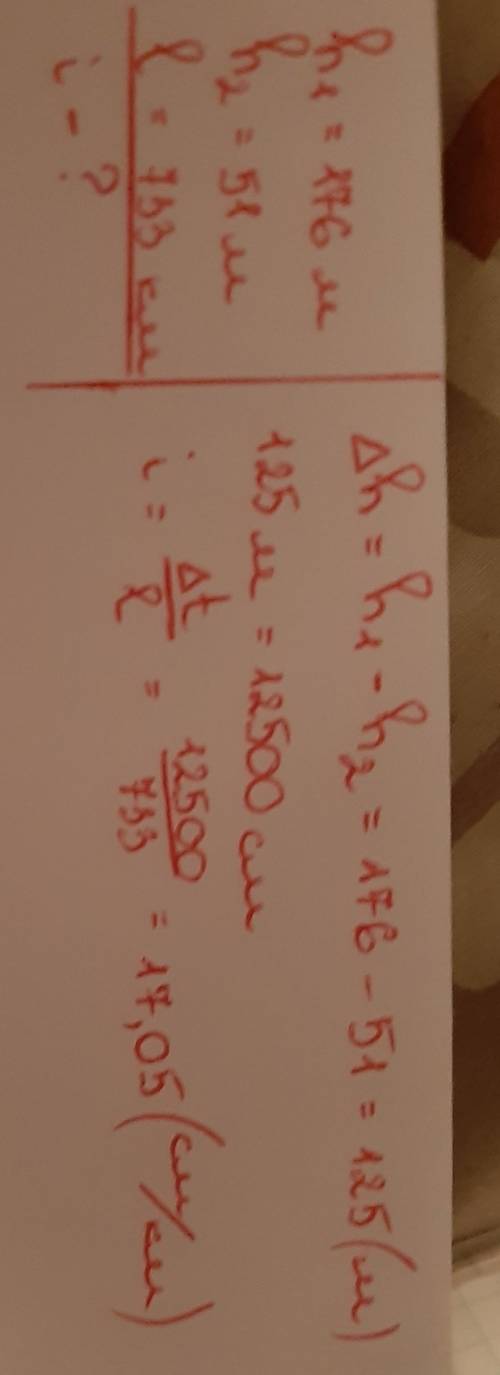 h₁ = 176 м
h₂ = 51 м
l = 733 км
i - ?
Δh = h₁ - h₂ = 176 - 51 = 125 (м)
125 м = 12500 см
i = Δt/l = 12500/733 = 17,05 (см/км)